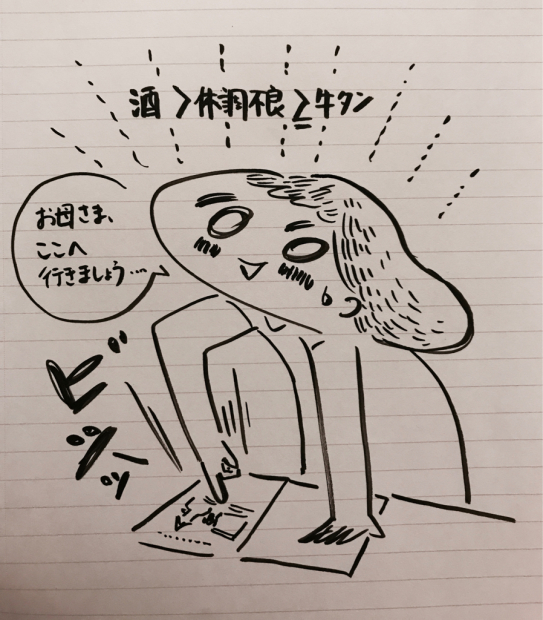 酒＞体調不良≧牛タン
お母さま、
ここへ
行きましょう…
ビシーッ